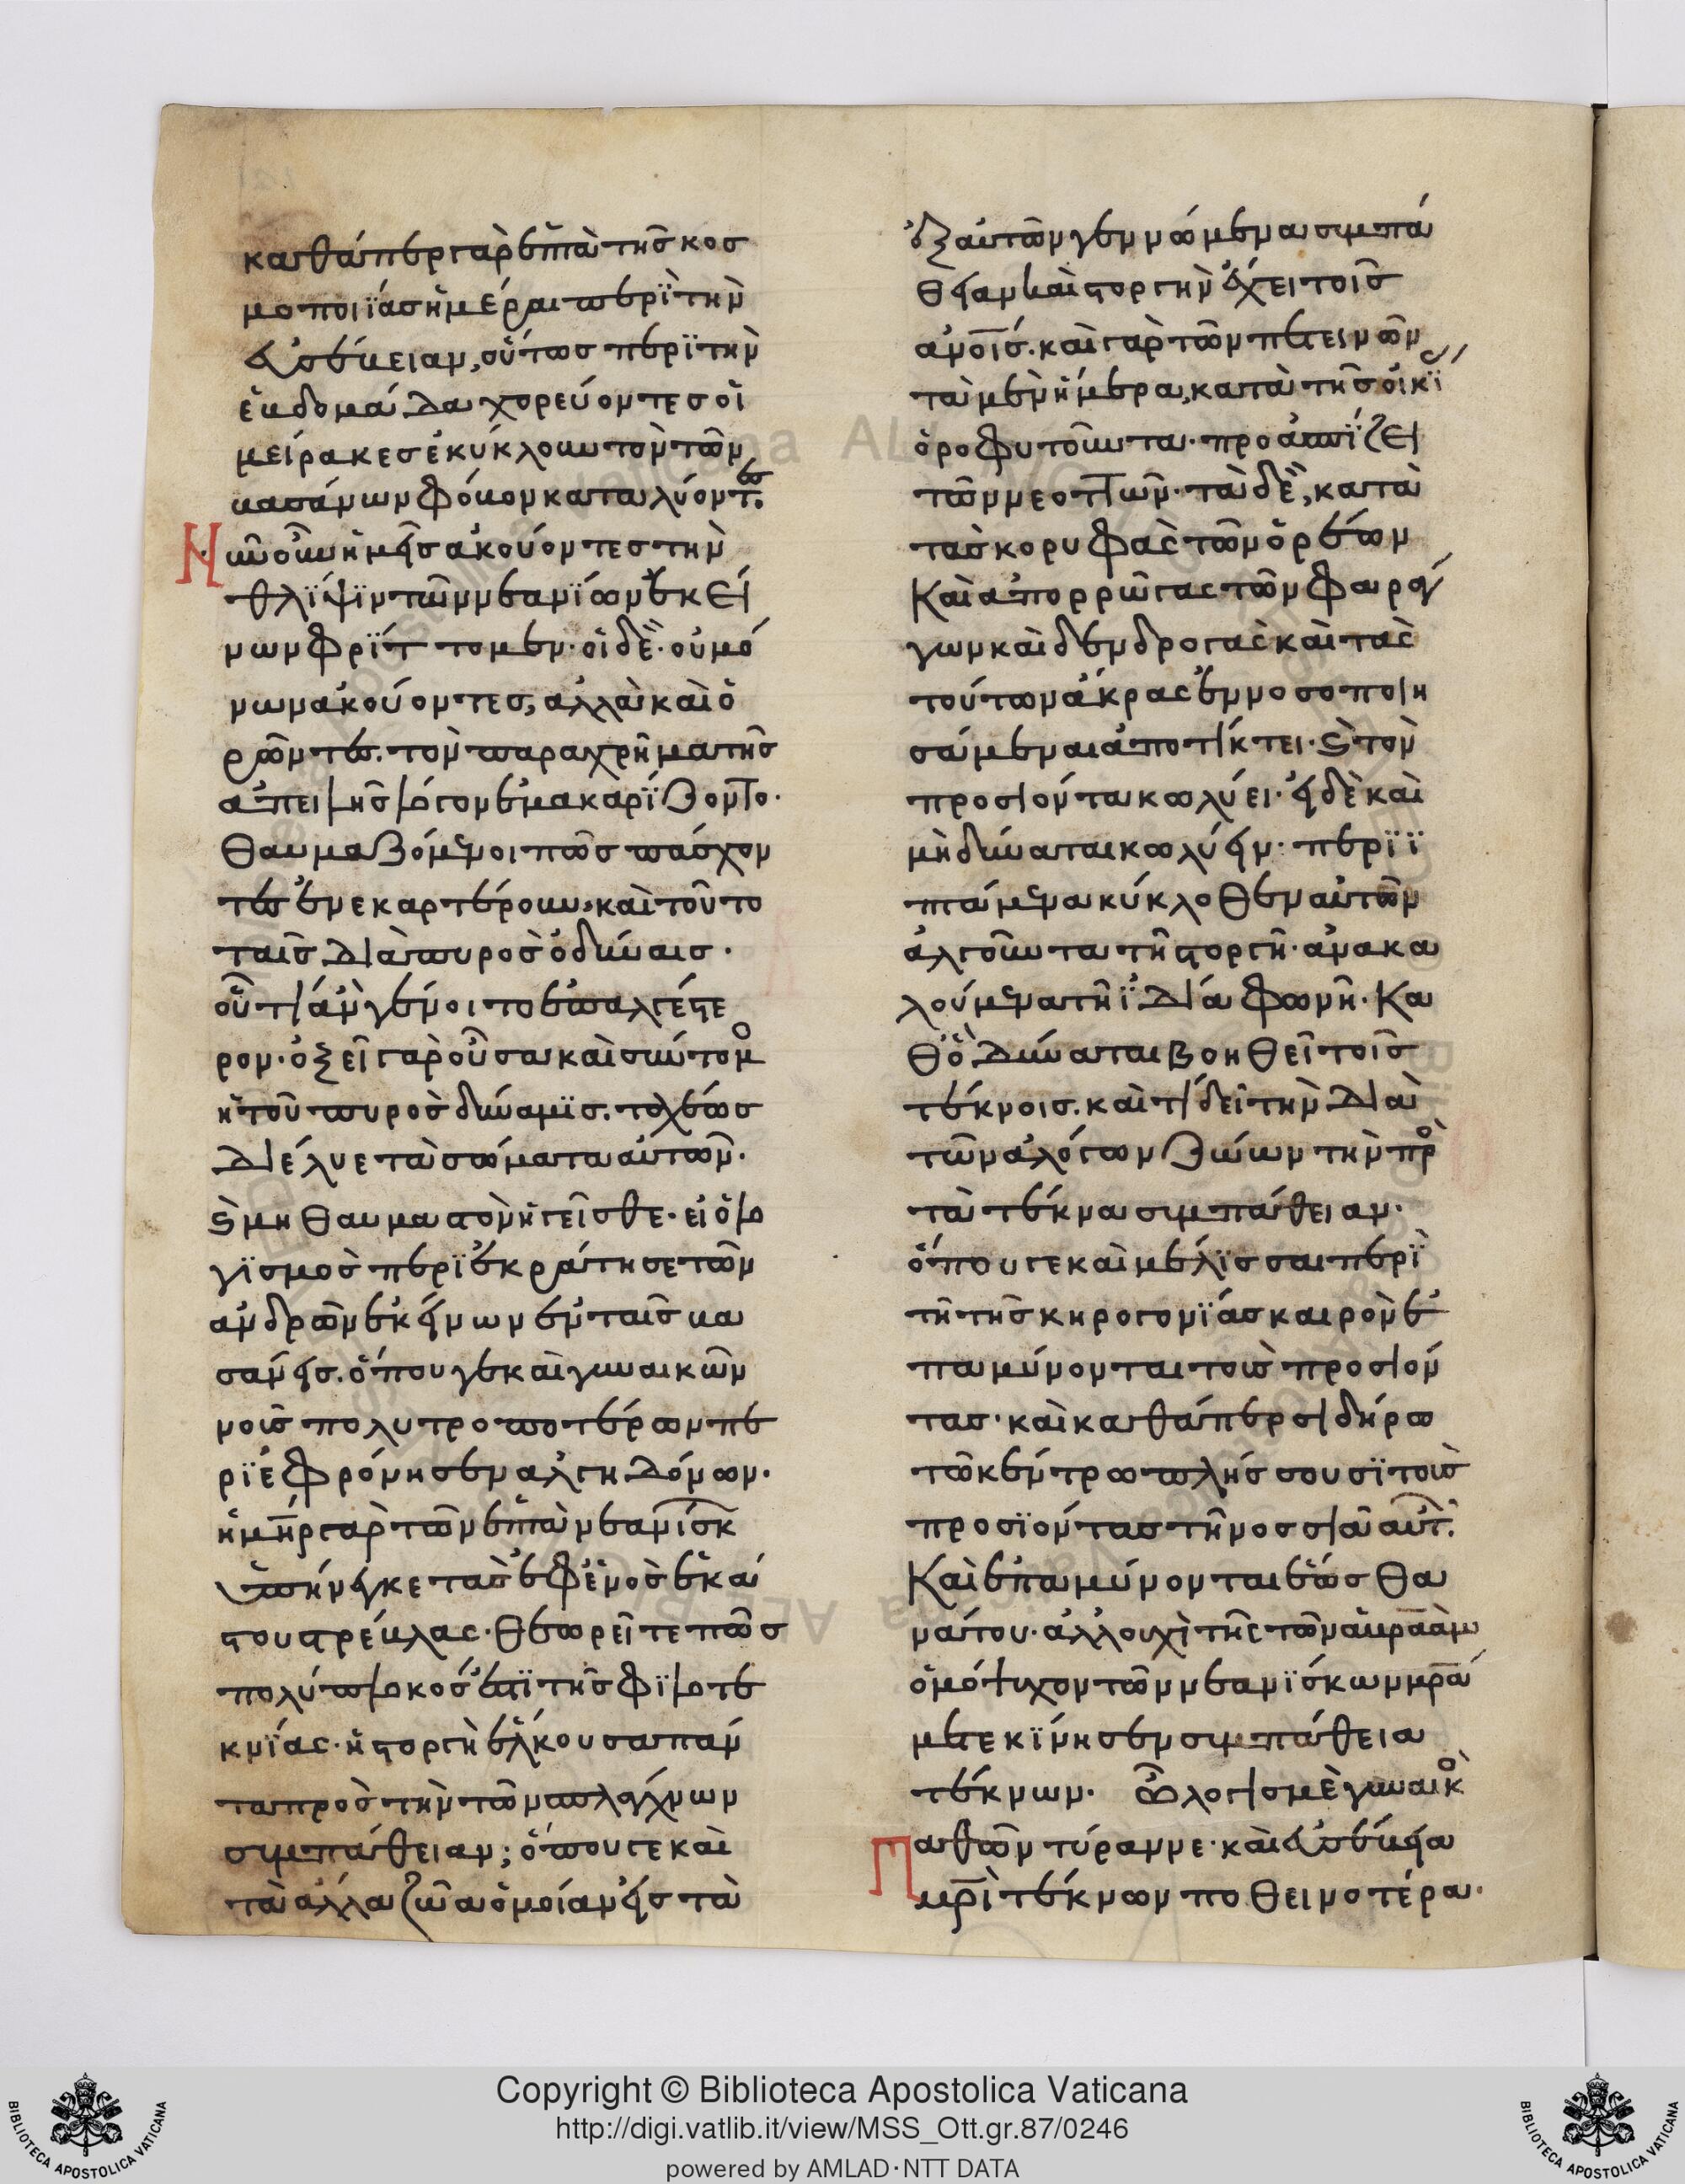 καθάπερ γὰρ ἑπτὰ τῆς κοσ
μοποιΐας ἡμέραι περὶ τὴν
εὐσέβειαν, οὕτως περὶ τὴν
ἑβδομάδα χορεύοντες οἱ
μείρακες ἐκύκλουν τὸν τῶν
βασάνων φόβον καταλύοντες.
Νῦν οὖν ἡμεῖς ἀκούοντες τὴν
θλίψιν τῶν νεανίων ἐκεί
νων φρίττομεν. οἱ δὲ. οὐ μό
νων ἀκούοντες, ἀλλὰ καὶ ὁ
ρῶντες. τὸν παραχρῆμα τῆς
ἀπειλῆς λόγον ἐμακαρίζοντο.
θαυμαζόμενοι πῶς πάσχον
τες ἐνεκαρτέρουν, καὶ τοῦτο
ταῖς διὰ πυρὸς ὀδύναις.
οὗ τί ἂν γένοιτο ἐπαλγέστε
ρον. ὀξεῖ γὰρ οὖσα καὶ σύντομος
ἡ τοῦ πυρὸς δύναμις. ταχέως
διέλυε τὰ σώματα αὐτῶν.
καὶ μὴ θαυμαστὸν ἡγεῖσθε. εἰ ὁ λο
γισμὸς περιεκράτησε τῶν
ἀνδρῶν ἐκείνων ἐν ταῖς βα
σάνοις. ὅπου γε καὶ γυναικῶν
νοῦς πολυτροπωτέρων πε
ριεφρόνησεν ἀλγηδόνων.
ἡ μὴρ γὰρ τῶν ἑπτὰ νεανίσκ
ὑπήνεγκε τὰς ἐφ' ἑνὸς ἑκά
στου στρέβλας. θεωρεῖτε πῶς
πολύπλοκός ἐστι τῆς φιλοτε
κνίας. ἡ στοργὴ ἕλκουσα πάν
τα πρὸς τὴν τῶν σπλάγχνων
συμπάθειαν; ὅπου γε καὶ
τὰ ἄλλα ζῶα ὁμοίαν εἰς τὰ
ἐξ αὐτῶν γεννώμενα συμπά
θειαν καὶ στοργὴν ἔχει τοῖς
ἀνοις. καὶ γὰρ τῶν πετεινῶν
τὰ μὲν ἥμερα, κατὰ τῆς οἰκί
ὀροφυτοῦντα. προασπίζει
τῶν νεοττῶν. τὰ δὲ, κατὰ
τὰς κορυφὰς τῶν ὀρέων
Καὶ ἀπορρῶγας τῶν φαράγ
γων καὶ δενδρογας καὶ τὰς
τούτων ἄκρας ἐννοσοποιη
σάμενα ἀποτίκτει. καὶ τὸν
προσιόντα κωλύει. εἰ δὲ καὶ
μὴ δύναται κωλύειν. περιϊ
πτάμενα κύκλοθεν αὐτῶν
ἀλγοῦντα τῆ στοργῆ. ἀνακα
λούμενα τῆ ἰδία φωνῆ. Κα
θὸ δύναται βοηθεῖ τοῖς
τέκνοις. καὶ τί δεῖ τὴν διὰ
τῶν ἀλόγων ζώων τὴν πρὸς
τὰ τέκνα συμπάθειαν.
ὅπου γε καὶ μέλισσαι περὶ
τῆ τῆς κηρογονίας καιρὸν ἐ
παμύνονται τοὺς προσιόν
τας. καὶ καθάπερ σιδήρω
τῶ κέντρω πλήσσουσι τοὺς
προσϊόντας τῆ νοσσιᾶ αὐτ.
Καὶ ἐπαμύνονται ἕως θα
νάτου. ἀλλ' οὐχὶ τῆς τῶν ἀβραὰμ
ὁμόψυχον τῶν νεανίσκων μρα
μετεκίνησεν συμπάθεια
τέκνων. Ὦ λογισμὲ γυναικὸς
Παθῶν τύραννε. καὶ εὐσέβεια
μρὶ τέκνων ποθεινοτέρα.
Copyright © Biblioteca Apostolica Vaticana
http://digi.vatlib.it/view/MSS_Ott.gr.87/0246
powered by AMLAD·NTT DATA
BIBLIOTECA APOSTOLICA VATICANA
BIBLIOTECA APOSTOLICA VATICANA